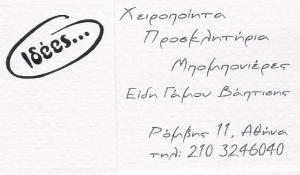 Ιδέες...
Χειροποίητα
Προσκλητήρια
Μπομπονιέρες
Είδη Γάμου Βάπτισης
Ρόμβης 11, Αθήνα
τηλ: 210 3246040